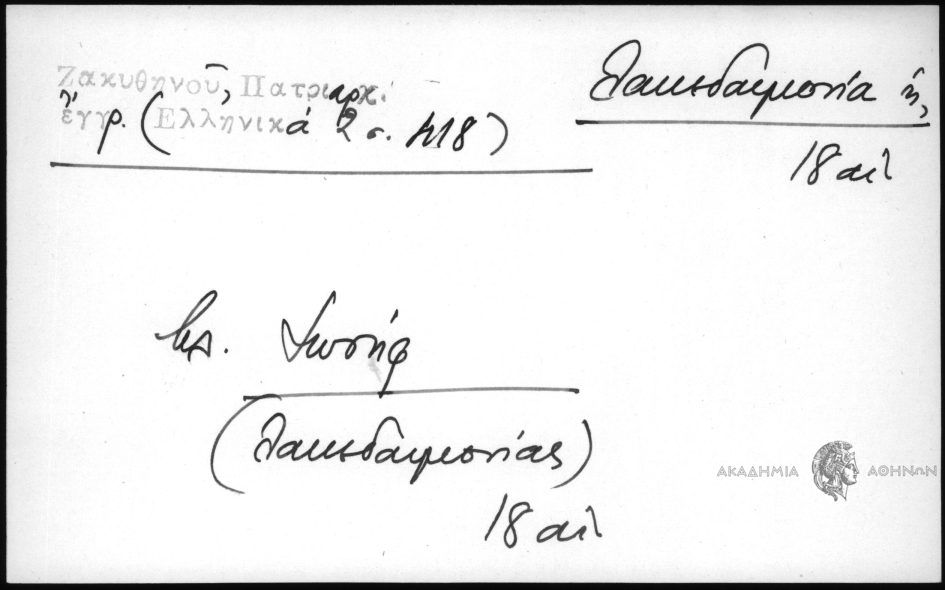 Ζακυθηνοῦ, Πατριαρχ.
ἔγγρ. (Ἑλληνικά 2 σ. 418)
Λακεδαιμονία ἡ,
18 αἰ
Ἰωσήφ
(Λακεδαιμονίας)
18 αἰ
ΑΚΑΔΗΜΙΑ ΑΘΗΝΩΝ